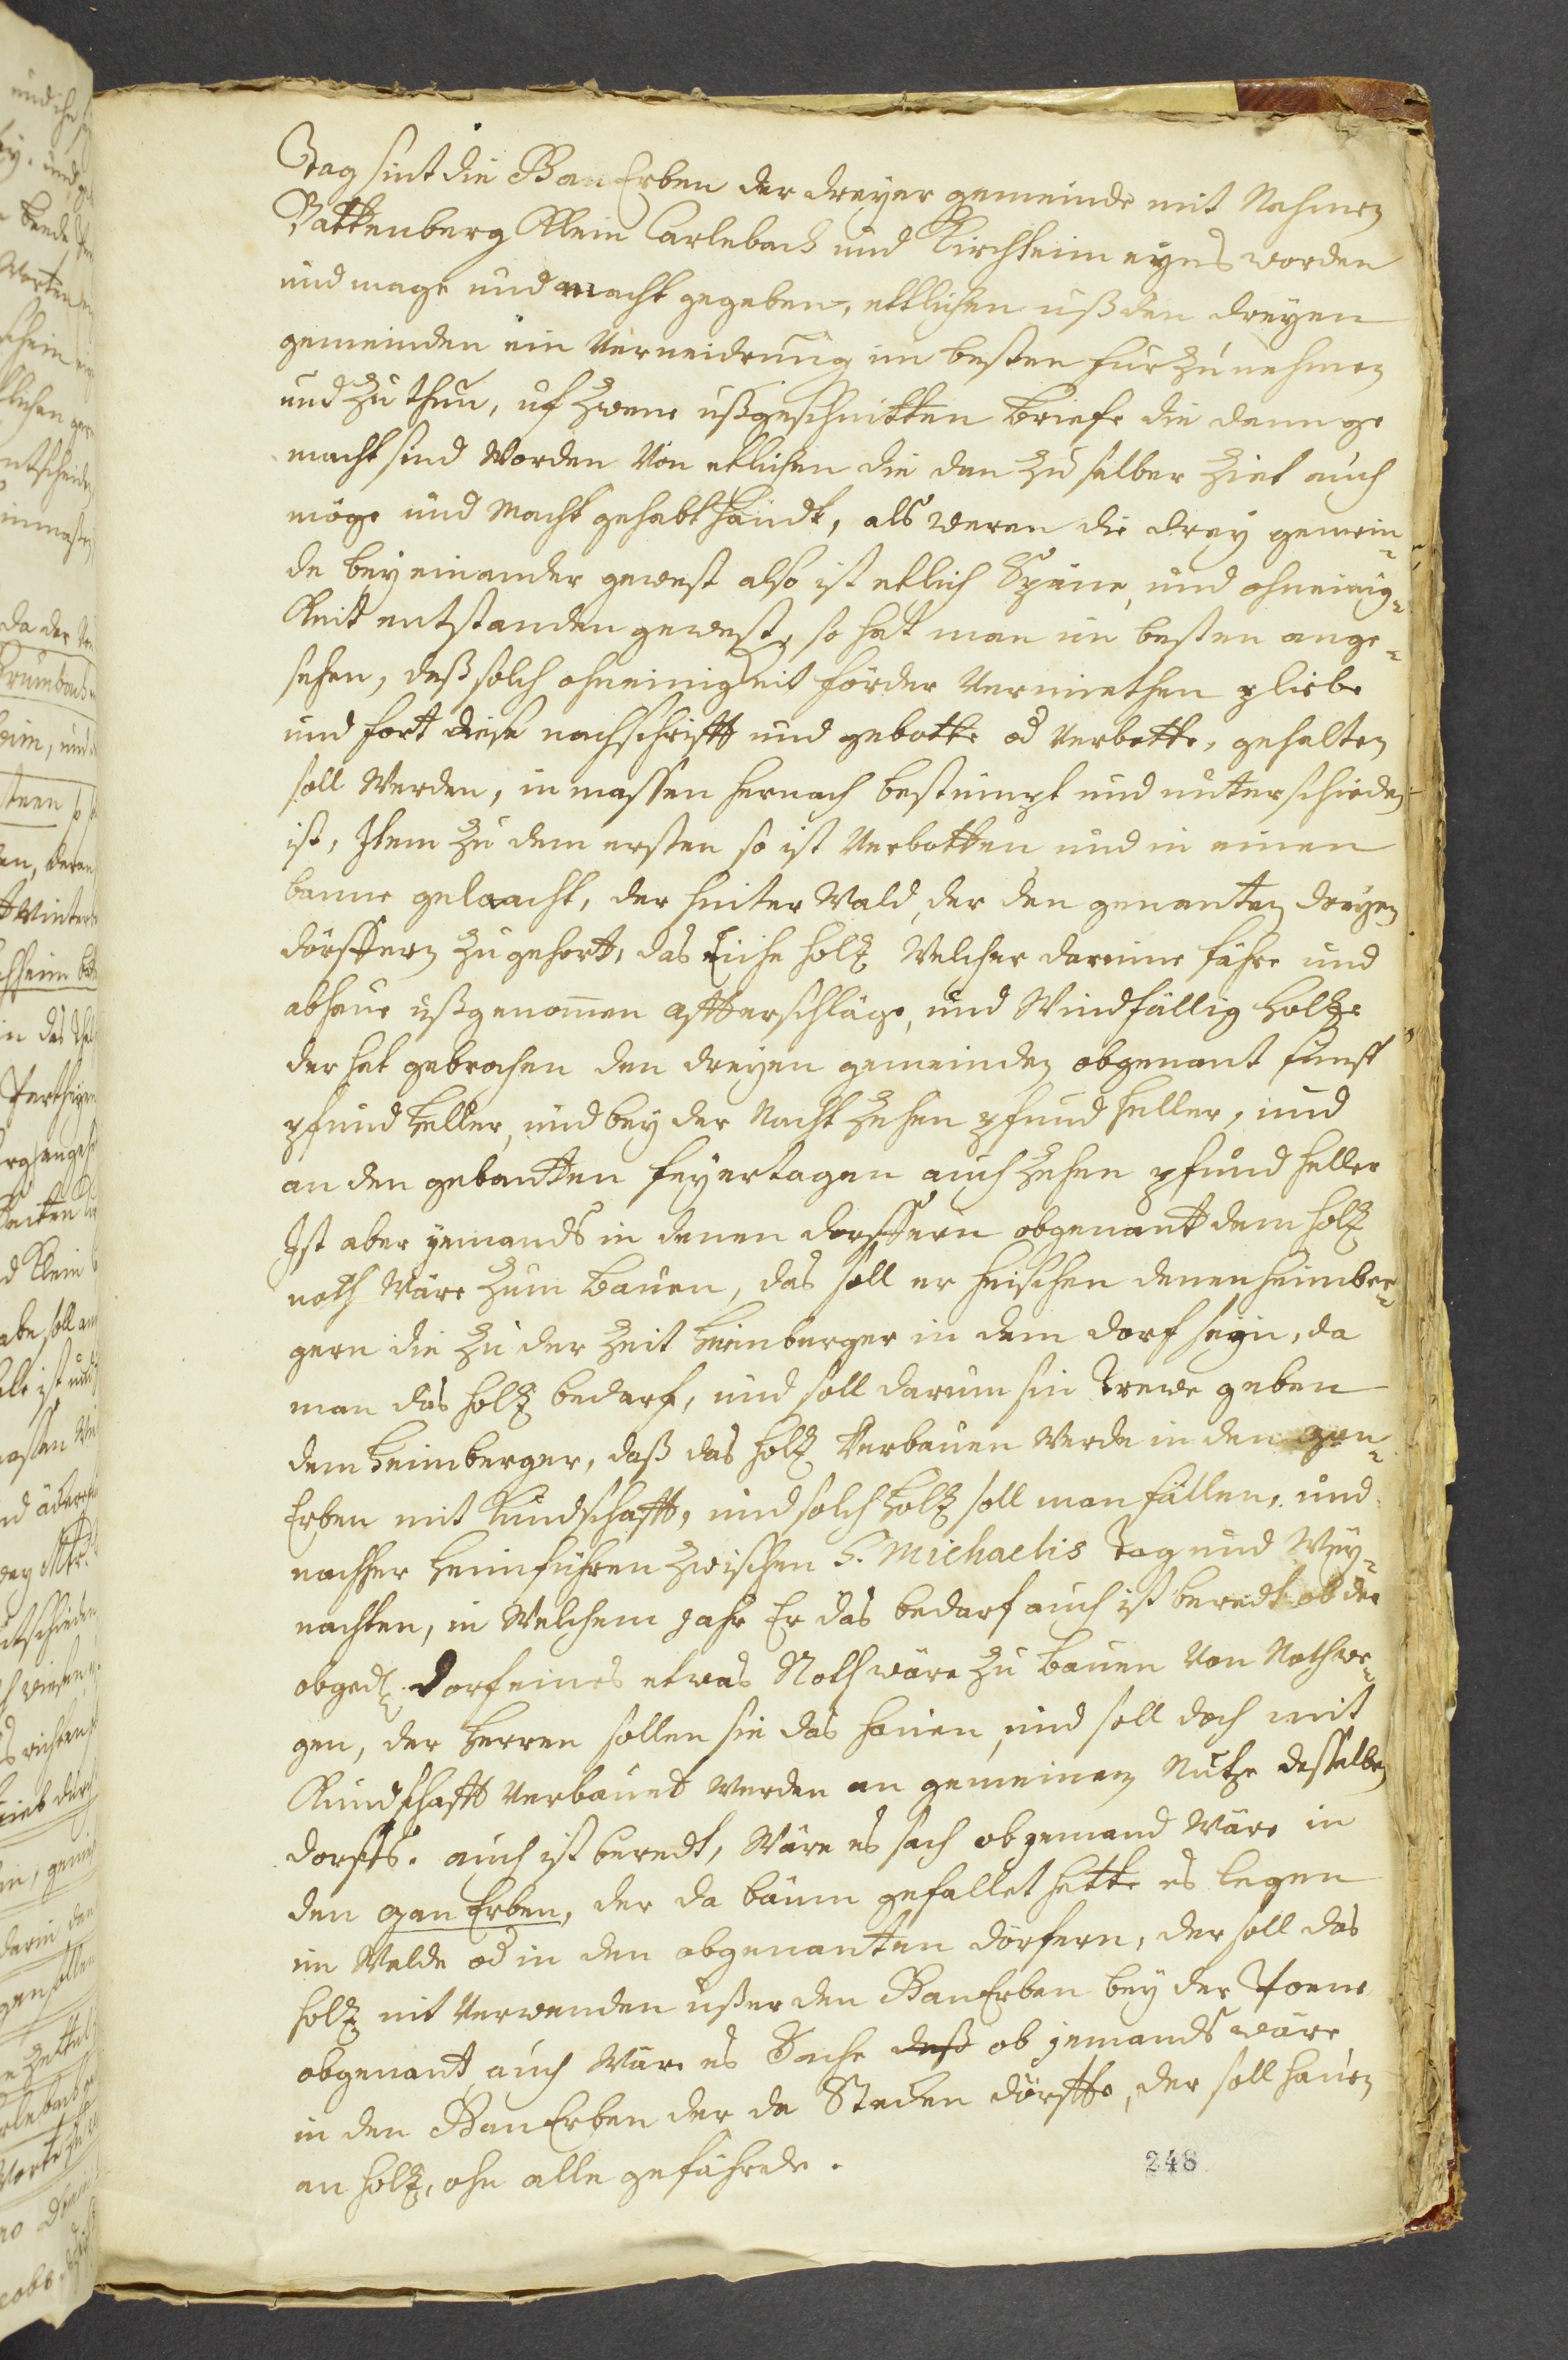 Tag sint die Ban Erben der dreyer gemeinde mit Nahmen
Battenberg Klein Carlebach und Kirchheim eyns worden
und mage und macht gegeben, ettlichen uß den dreyen
gemeinden ein Verneidrung im besten fur zu nehmen
und zu thun, uf zwene ußgeschnitten briefe die dann ge
macht sind Worden Von etlichen die dan zu selber Ziet auch
möge und Macht gehabt handt, als weren die drey gemein¬
de bey einander gewest also ist etlich Spänne, und ohneinig¬
keit entstanden gewest, so hat man im besten ange¬
sehen, daß solch ohneinigkeit förder Vermiethen pliebe
und fort diese nachschrifft und gebotte od Verbotte, gehalten
soll Werden, in massen hernach bestimpt und unterschieden
ist, Item zu dem ersten so ist Verbotten und in einen
banne gelaacht, der hinter Wald, der den genanten dreyen
dörffern zu gehort, das Eiche holtz Welcher darinne fahre und
abhaue ußgenomen affterschläge, und Windfällig Holtze
der hat gebrochen den dreyen gemeinden obgenant funff
pfund Heller, und bey der Nacht zehen pfund heller, und
an den gebantten feyertagen auch zehen pfund heller
Ist aber yemands in denen dorffern obgenant dem holtz
noth Wäre zum bauen, das soll er heischen denen heimber¬
gern die zu der Zeit heimberger in dem dorf seyn, da
man das holtz bedarf, und soll darum sin Trewe geben
dem heimberger, daß das holtz Verbauen Werde in den gan¬
Erben mit Kundschafft, und solch Holtz soll man fällen, und
nachher heimführen zwischen S. Michaelis Tag und Wey¬
nachten, in Welchem Jahr Er das bedarf auch ist beredt ob der
obged. Dorf eines etwas Noth wäre zu bauen Von Noth we¬
gen, der Herren sollen sie das hauen, und soll doch mit
Kundschafft Verbauet Werden an gemeinen Nutze desselben
dorffs. auch ist beredt, Wäre es sach ob yemand Wäre in
den gan Erben, der da bäum gefället hette es legen
im Walde od in den obgenanten dörfern, der soll das
holtz nit Verwenden ußer den Ban Erben bey der Poene
obgenant, auch Wäre es Sache daß ob jemands wäre
in den Ban Erben der da Stecken dörffte, der soll hauen
an holtz, ohn alle gefährde.
248